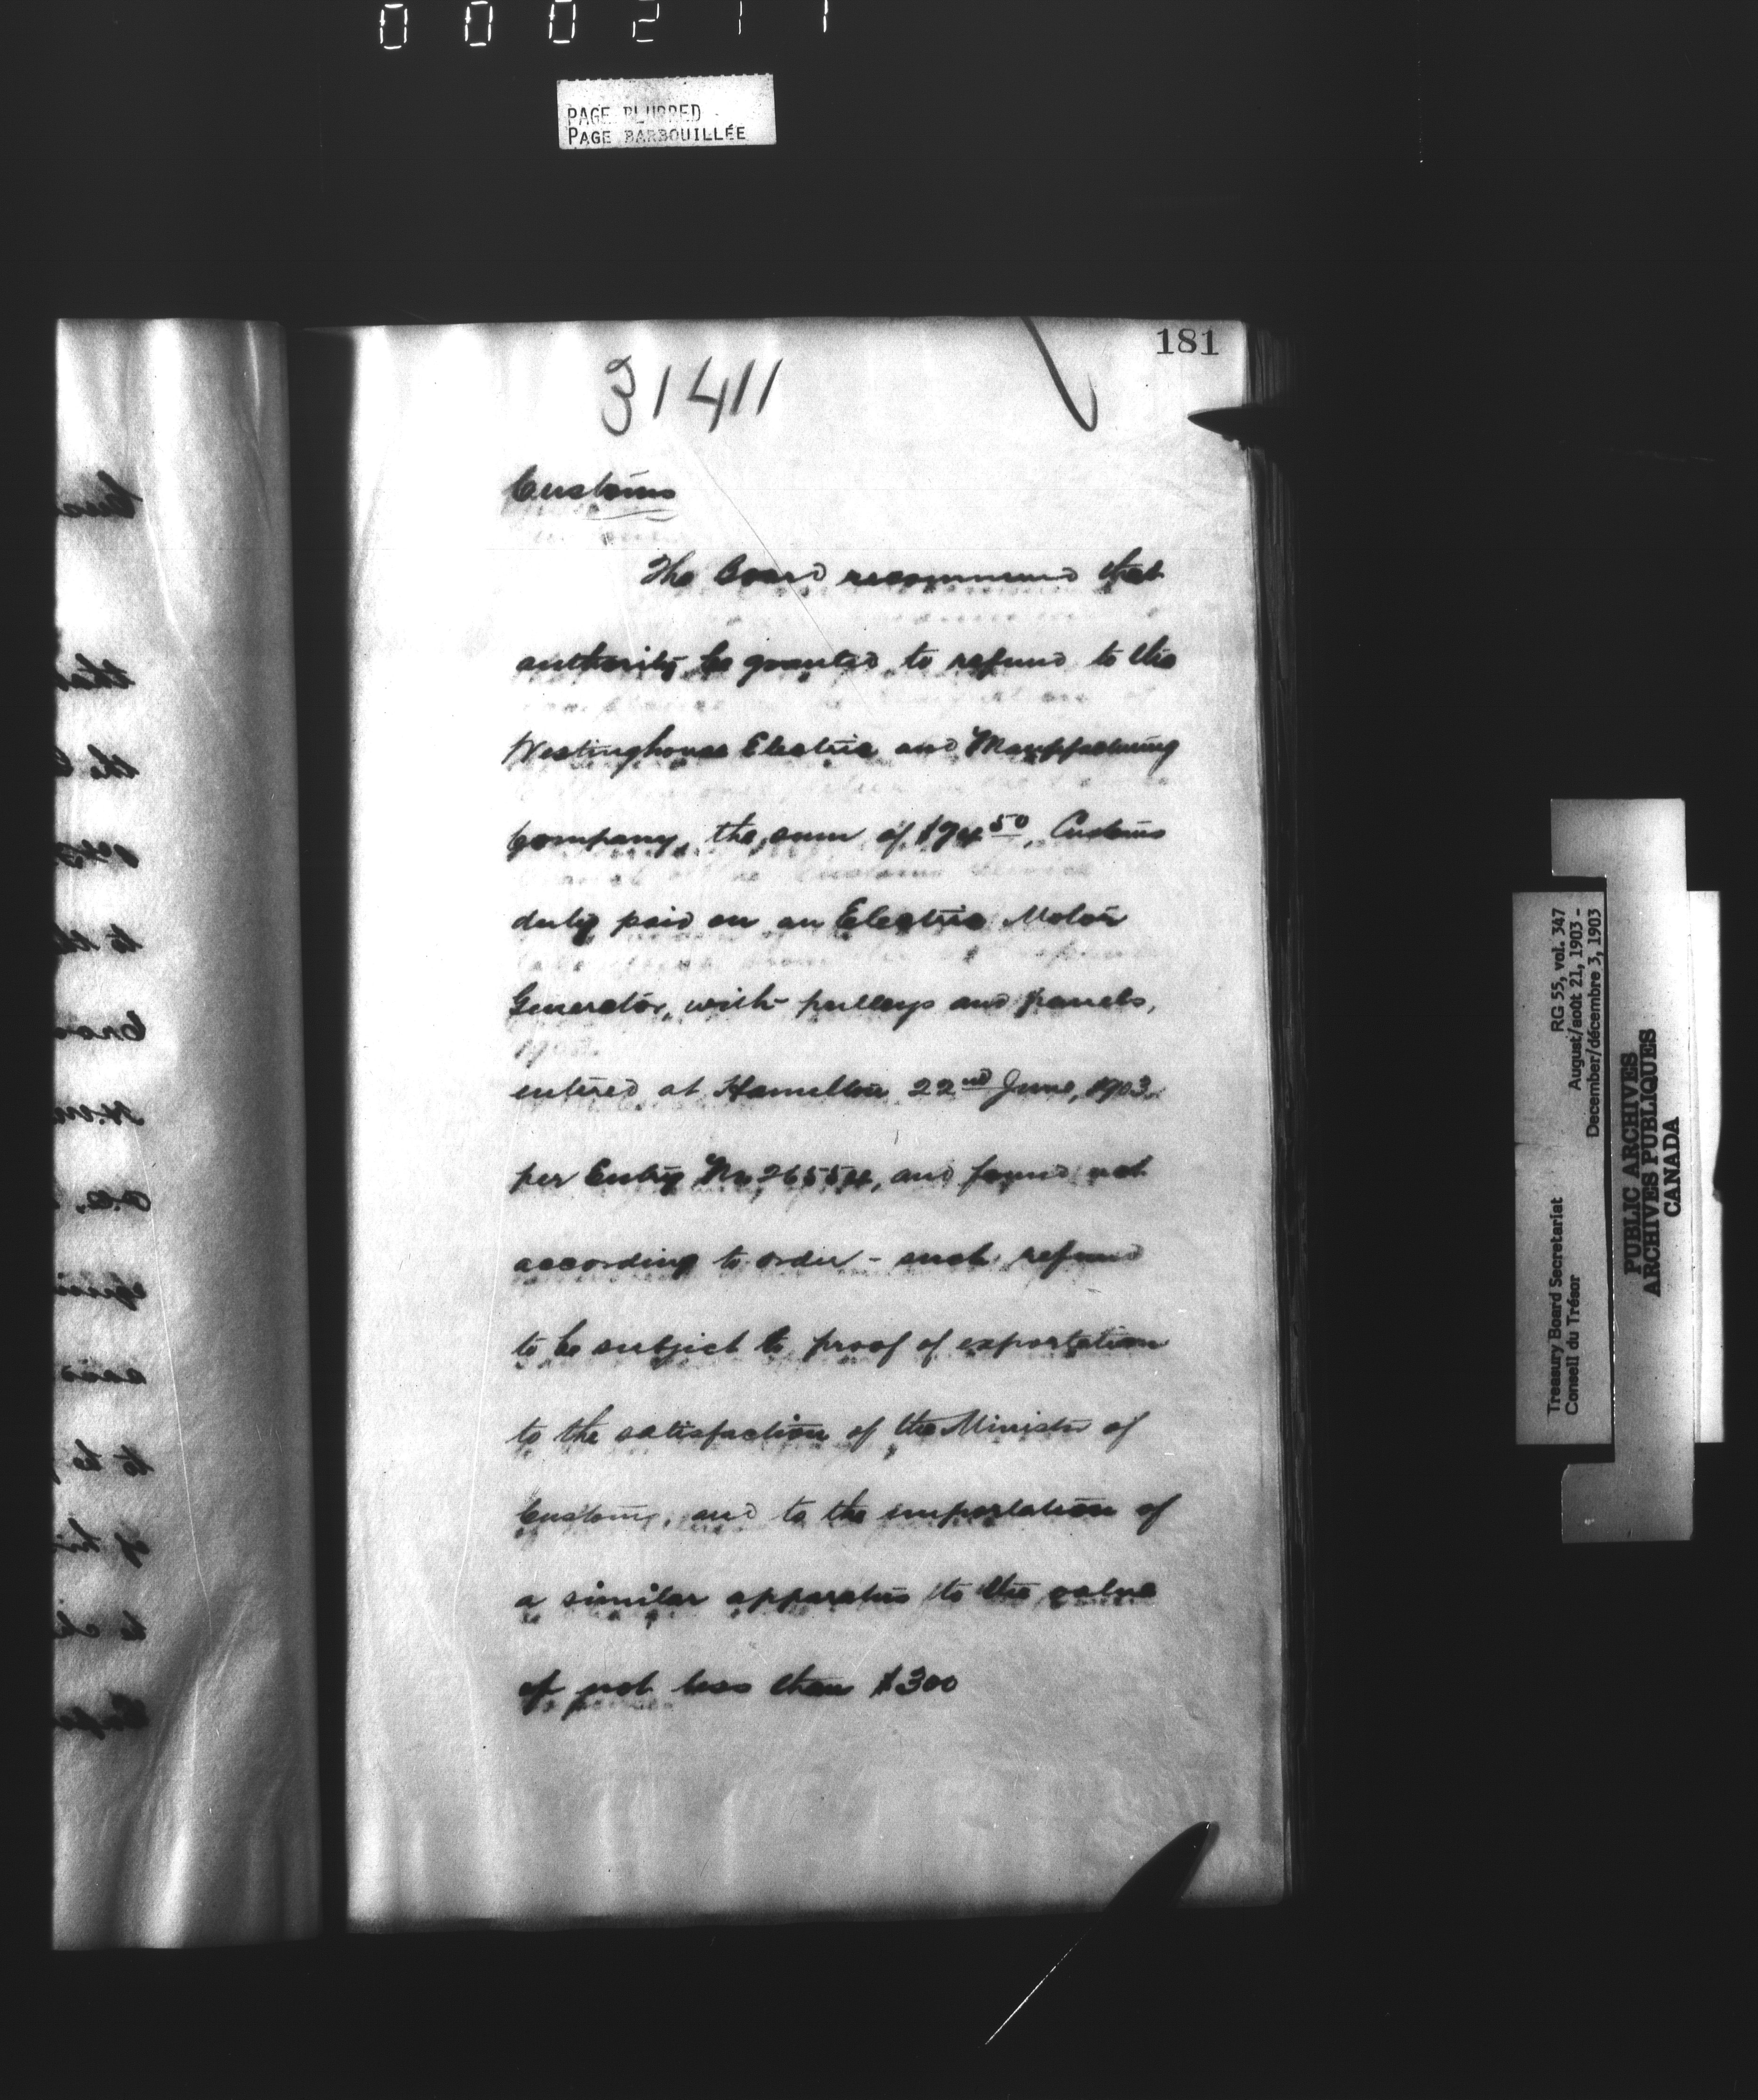 000211
PAGE BLURRED
PAGE BARBOUILLÉE
181
31411
Customs
The Board recommend that
authority be granted to refund to the
Westinghouse Electric and Manufacturing
Company, the sum of $74 50, Customs
duty paid on an Electric Motor
Generator, with pulleys and panels,
entered at Hamilton 22nd June, 1903,
per Entry No 26554, and found not
according to order - such refund
to be subject to proof of exportation
to the satisfaction of the Minister of
Customs, and to the importation of
a similar apparatus to the value
of not less than $300
Treasury Board Secretariat RG 55, vol. 347
Conseil du Trésor August/août 21, 1903 -
December/décembre 3, 1903
PUBLIC ARCHIVES
ARCHIVES PUBLIQUES
CANADA